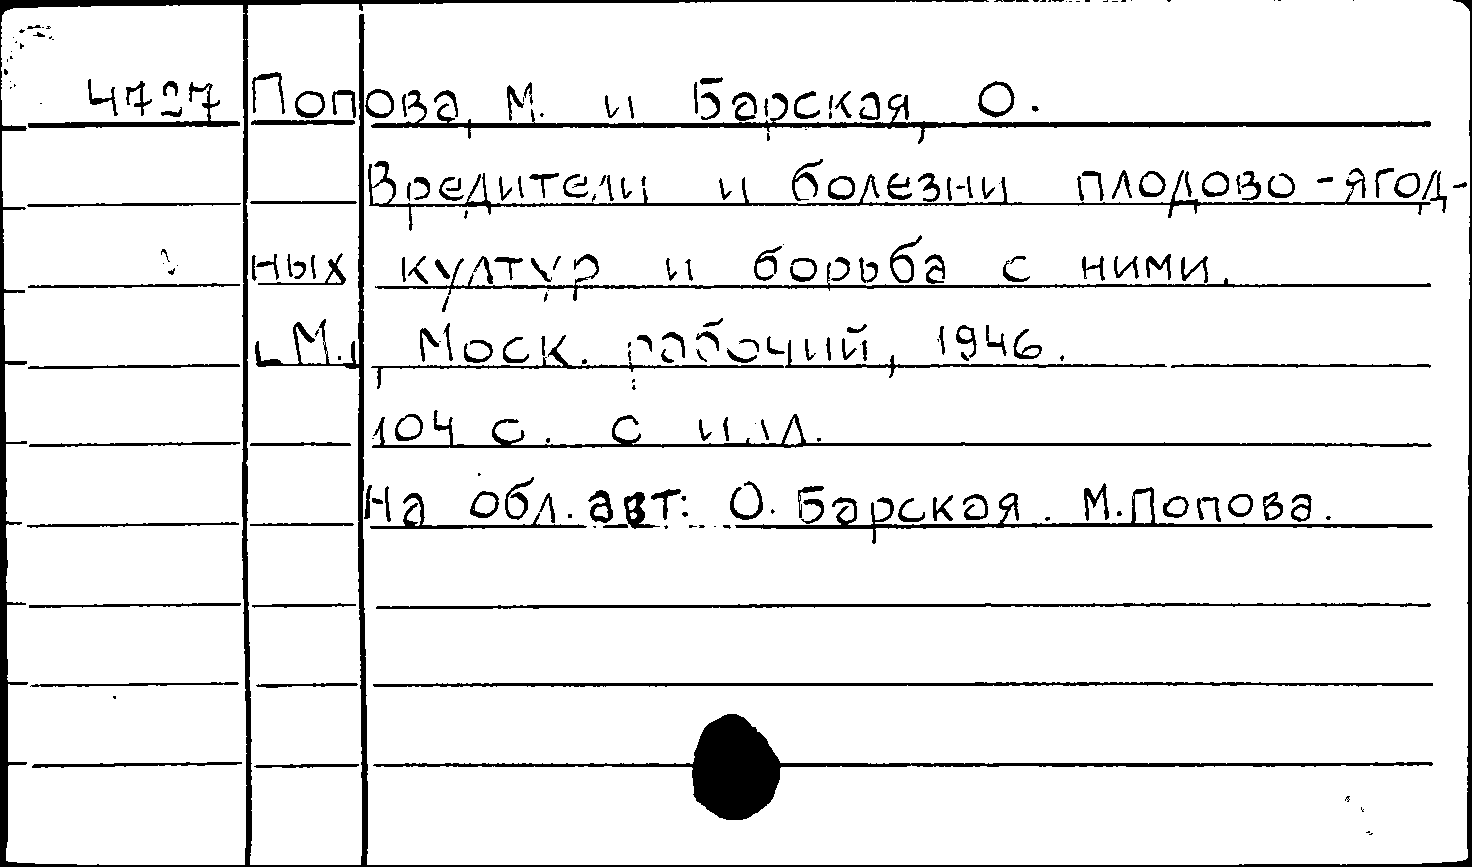 4727 Попова, М. и Барская, О.
Вредители и болезни плодово-ягод-
ных култур и борьба с ними.
[М.], Моск. рабочий, 1946.
104 с. с илл.
На обл. авт: О. Барская. М. Попова.